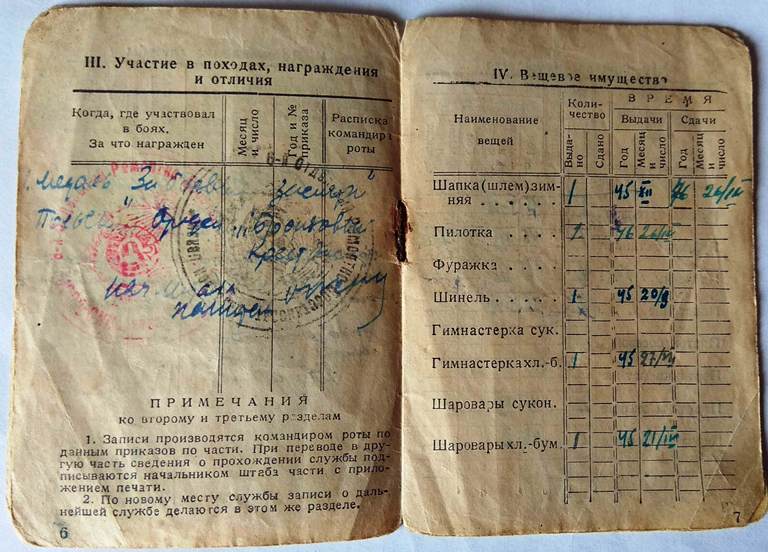 III. Участие в походах, награждения
и отличия
Когда, где участвовал
в боях.
За что награжден
Месяц
и число
Год и №
приказа
Расписка
командира
роты
Медаль За
Польск Орден "Бронзовый
Крест
ПРИМЕЧАНИЯ
ко второму и третьему разделам
1. Записи производятся командиром роты по
данным приказов по части. При переводе в дру-
гую часть сведения о прохождении службы под-
писываются начальником штаба части с прило-
жением печати.
2. По новому месту службы записи о даль-
нейшей службе делаются в этом же разделе.
6
IV. Вещевое имущество
Наименование
вещей
Коли-
чество
ВРЕМЯ
Выдачи
Сдачи
Выда-
но
Сдано
Год
Месяц
и
число
Год
Месяц
и
число
Шапка (шлем) зим-
няя . . . . . . 1 45 XII 46
Пилотка . . . . 1 46
Фуражка . . . .
Шинель . . . . . 1 45 20/9
Гимнастерка сук.
Гимнастерка хл.-б. 1 45
Шаровары сукон.
Шаровары хл.-бум. 1
7